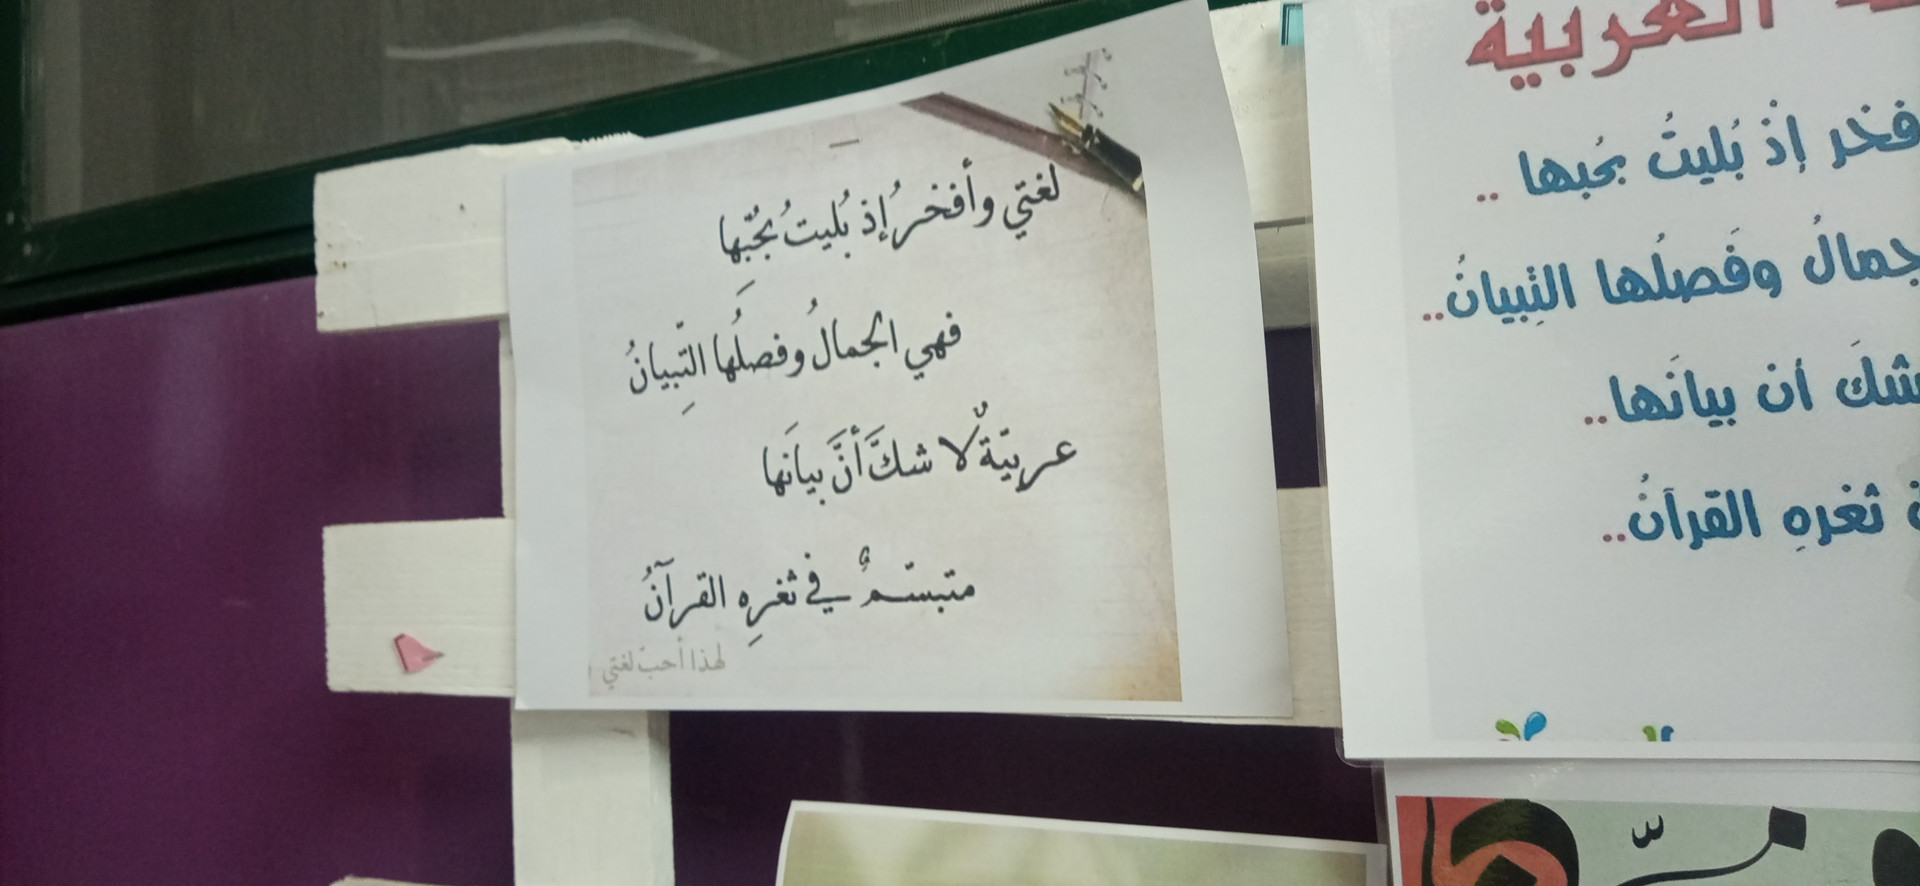 لغتي وأفخرُ إذ بُليتُ بحُبّها
فهي الجمالُ وفصلُها التِّبيانُ
عربيّةٌ لا شكَّ أنَّ بيانَها
متبسّمٌ في ثغرِه القرآنُ
لهذا أحبّ لغتي
العربية
فخر إذْ بُليتُ بحُبها ..
جمالُ وفَصلُها التِبيانُ..
شكَ أن بيانَها..
ثغرهِ القرآنُ..